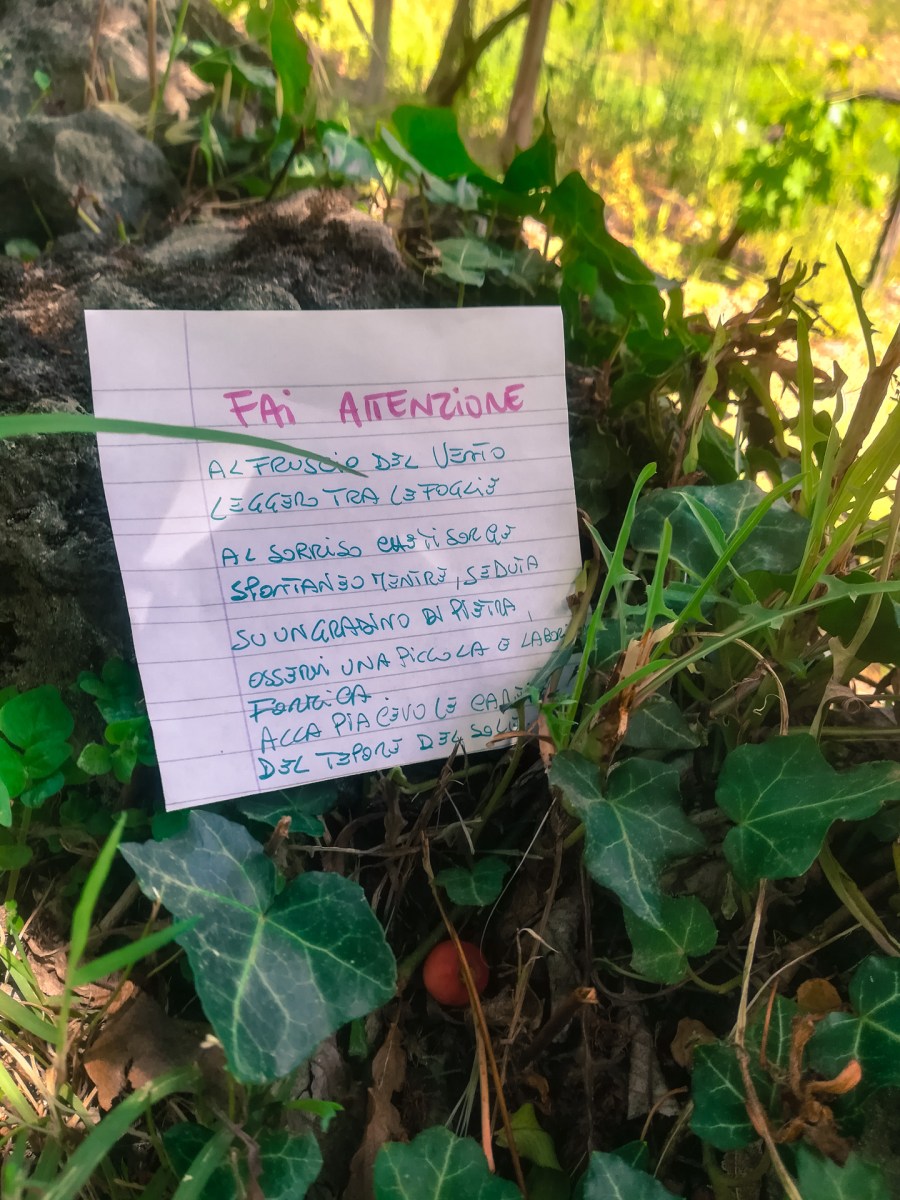 FAI ATTENZIONE
AL FRUSCIO DEL VENTO
LEGGERO TRA LE FOGLIE
AL SORRISO CHE TI SORGE
SPONTANEO MENTRE, SEDUTA
SU UN GRADINO DI PIETRA,
OSSERVI UNA PICCOLA E LABORI
FORMICA.
ALLA PIACEVOLE CAREZ
DEL TEPORE DEL SOLE